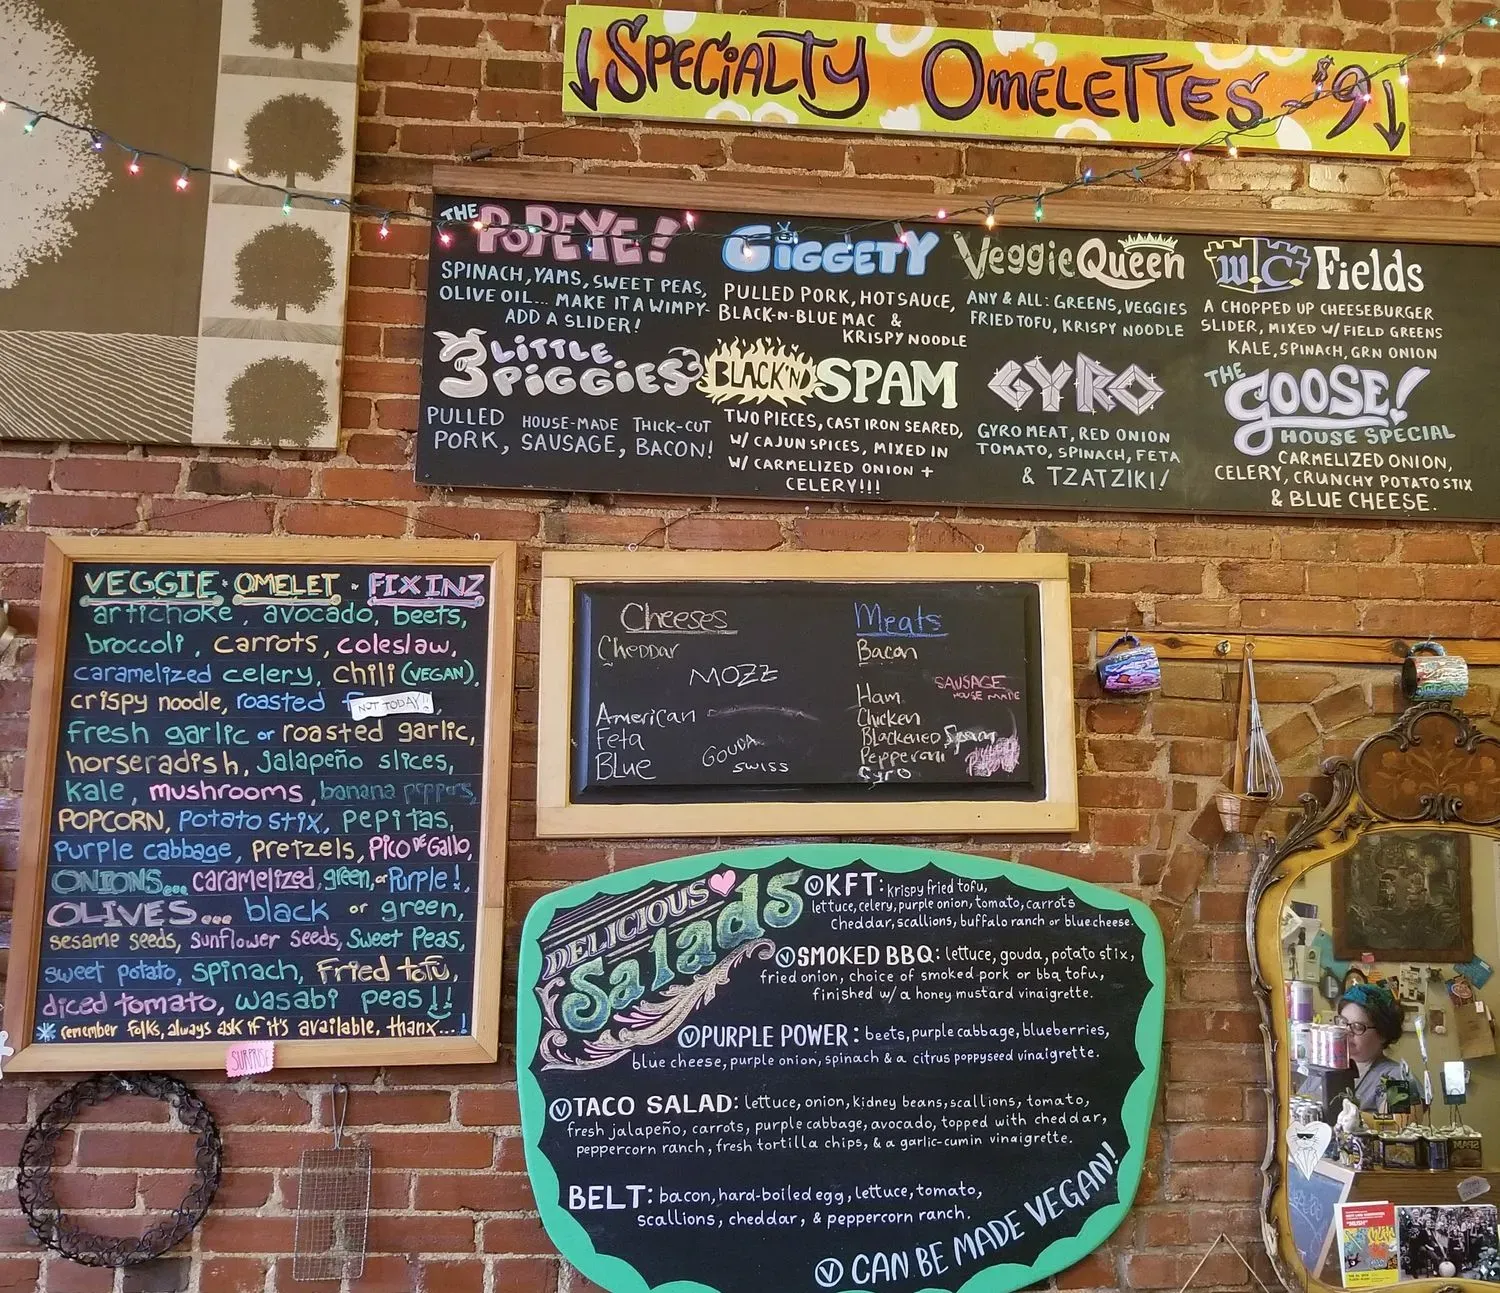 SPECIALTY OMELETTES - $9
THE POPEYE!
SPINACH, YAMS, SWEET PEAS,
OLIVE OIL... MAKE IT A WIMPY-
ADD A SLIDER!
GIGGETY
PULLED PORK, HOT SAUCE,
BLACK-N-BLUE MAC &
KRISPY NOODLE
VeggieQueen
ANY & ALL: GREENS, VEGGIES
FRIED TOFU, KRISPY NOODLE
W.C. Fields
A CHOPPED UP CHEESEBURGER
SLIDER, MIXED W/ FIELD GREENS
KALE, SPINACH, GRN ONION
3 LITTLE
PIGGIES
PULLED HOUSE-MADE THICK-CUT
PORK, SAUSAGE, BACON!
BLACK'ND SPAM
TWO PIECES, CAST IRON SEARED,
W/ CAJUN SPICES, MIXED IN
W/ CARMELIZED ONION +
CELERY!!!
GYRO
GYRO MEAT, RED ONION
TOMATO, SPINACH, FETA
& TZATZIKI!
THE GOOSE!
HOUSE SPECIAL
CARMELIZED ONION,
CELERY, CRUNCHY POTATO STIX
& BLUE CHEESE.
VEGGIE · OMELET · FIXINZ
artichoke, avocado, beets,
broccoli, carrots, coleslaw,
caramelized celery, chili (VEGAN),
crispy noodle, roasted NOT TODAY!!,
Fresh garlic or roasted garlic,
horseradish, jalapeño slices,
kale, mushrooms, banana peppers,
POPCORN, POTATO STIX, PEPITAS,
Purple cabbage, Pretzels, Pico de Gallo,
ONIONS... caramelized, green, or Purple!,
OLIVES... black or green,
sesame seeds, sunflower seeds, Sweet Peas,
sweet potato, spinach, Fried tofu,
diced tomato, wasabi peas!!
* remember folks, always ask if it's available, thanx...!
SURPRISE
Cheeses
Cheddar
MOZZ
American
Feta
GOUDA
Blue
SWISS
Meats
Bacon
SAUSAGE
HOUSE MADE
Ham
Chicken
Blackened Spam
Pepperoni
Gyro
DELICIOUS
Salads
Ⓥ KFT: krispy fried tofu,
lettuce, celery, purple onion, tomato, carrots
Cheddar, scallions, buffalo ranch or blue cheese.
Ⓥ SMOKED BBQ: lettuce, gouda, potato stix,
fried onion, choice of smoked pork or bbq tofu,
finished w/ a honey mustard vinaigrette.
Ⓥ PURPLE POWER: beets, purple cabbage, blueberries,
blue cheese, purple onion, spinach & a citrus poppyseed vinaigrette.
Ⓥ TACO SALAD: lettuce, onion, kidney beans, scallions, tomato,
fresh jalapeño, carrots, purple cabbage, avocado, topped with cheddar,
peppercorn ranch, fresh tortilla chips, & a garlic-cumin vinaigrette.
BELT: bacon, hard-boiled egg, lettuce, tomato,
scallions, cheddar, & peppercorn ranch.
Ⓥ CAN BE MADE VEGAN!